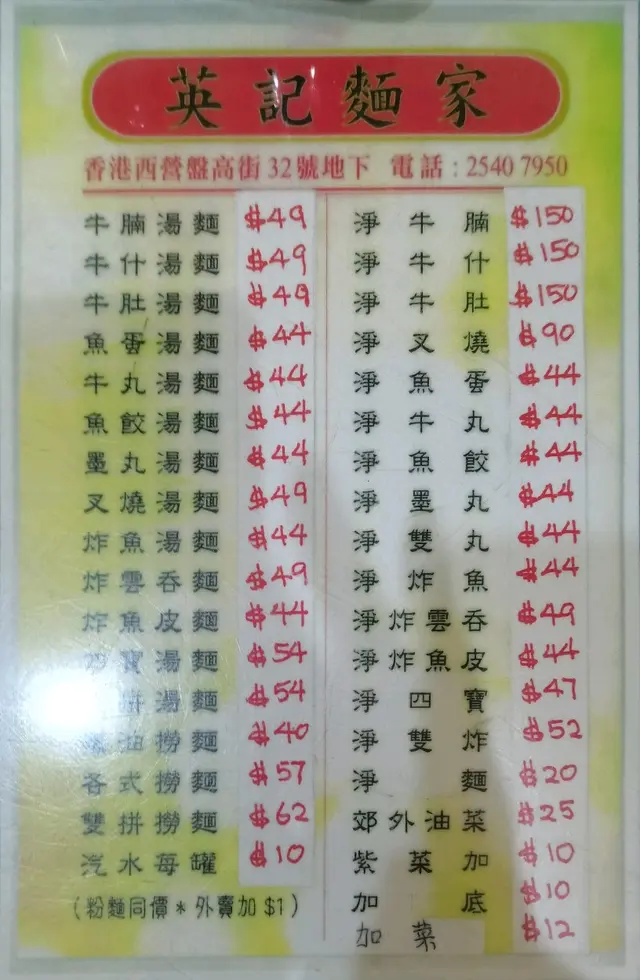 英記麵家
香港西營盤高街32號地下 電話:2540 7950
牛腩湯麵 $49
牛什湯麵 $49
牛肚湯麵 $49
魚蛋湯麵 $44
牛丸湯麵 $44
魚餃湯麵 $44
墨丸湯麵 $44
叉燒湯麵 $49
炸魚湯麵 $44
炸雲吞麵 $49
炸魚皮麵 $44
寶湯麵 $54
拼湯麵 $54
油撈麵 $40
各式撈麵 $57
雙拼撈麵 $62
汽水每罐 $10
(粉麵同價*外賣加$1)
淨牛腩 $150
淨牛什 $150
淨牛肚 $150
淨叉燒 $90
淨魚蛋 $44
淨牛丸 $44
淨魚餃 $44
淨墨丸 $44
淨雙丸 $44
淨炸魚 $44
淨炸雲吞 $49
淨炸魚皮 $44
淨四寶 $47
淨雙炸 $52
淨麵 $20
郊外油菜 $25
紫菜加 $10
加底 $10
加菜 $12